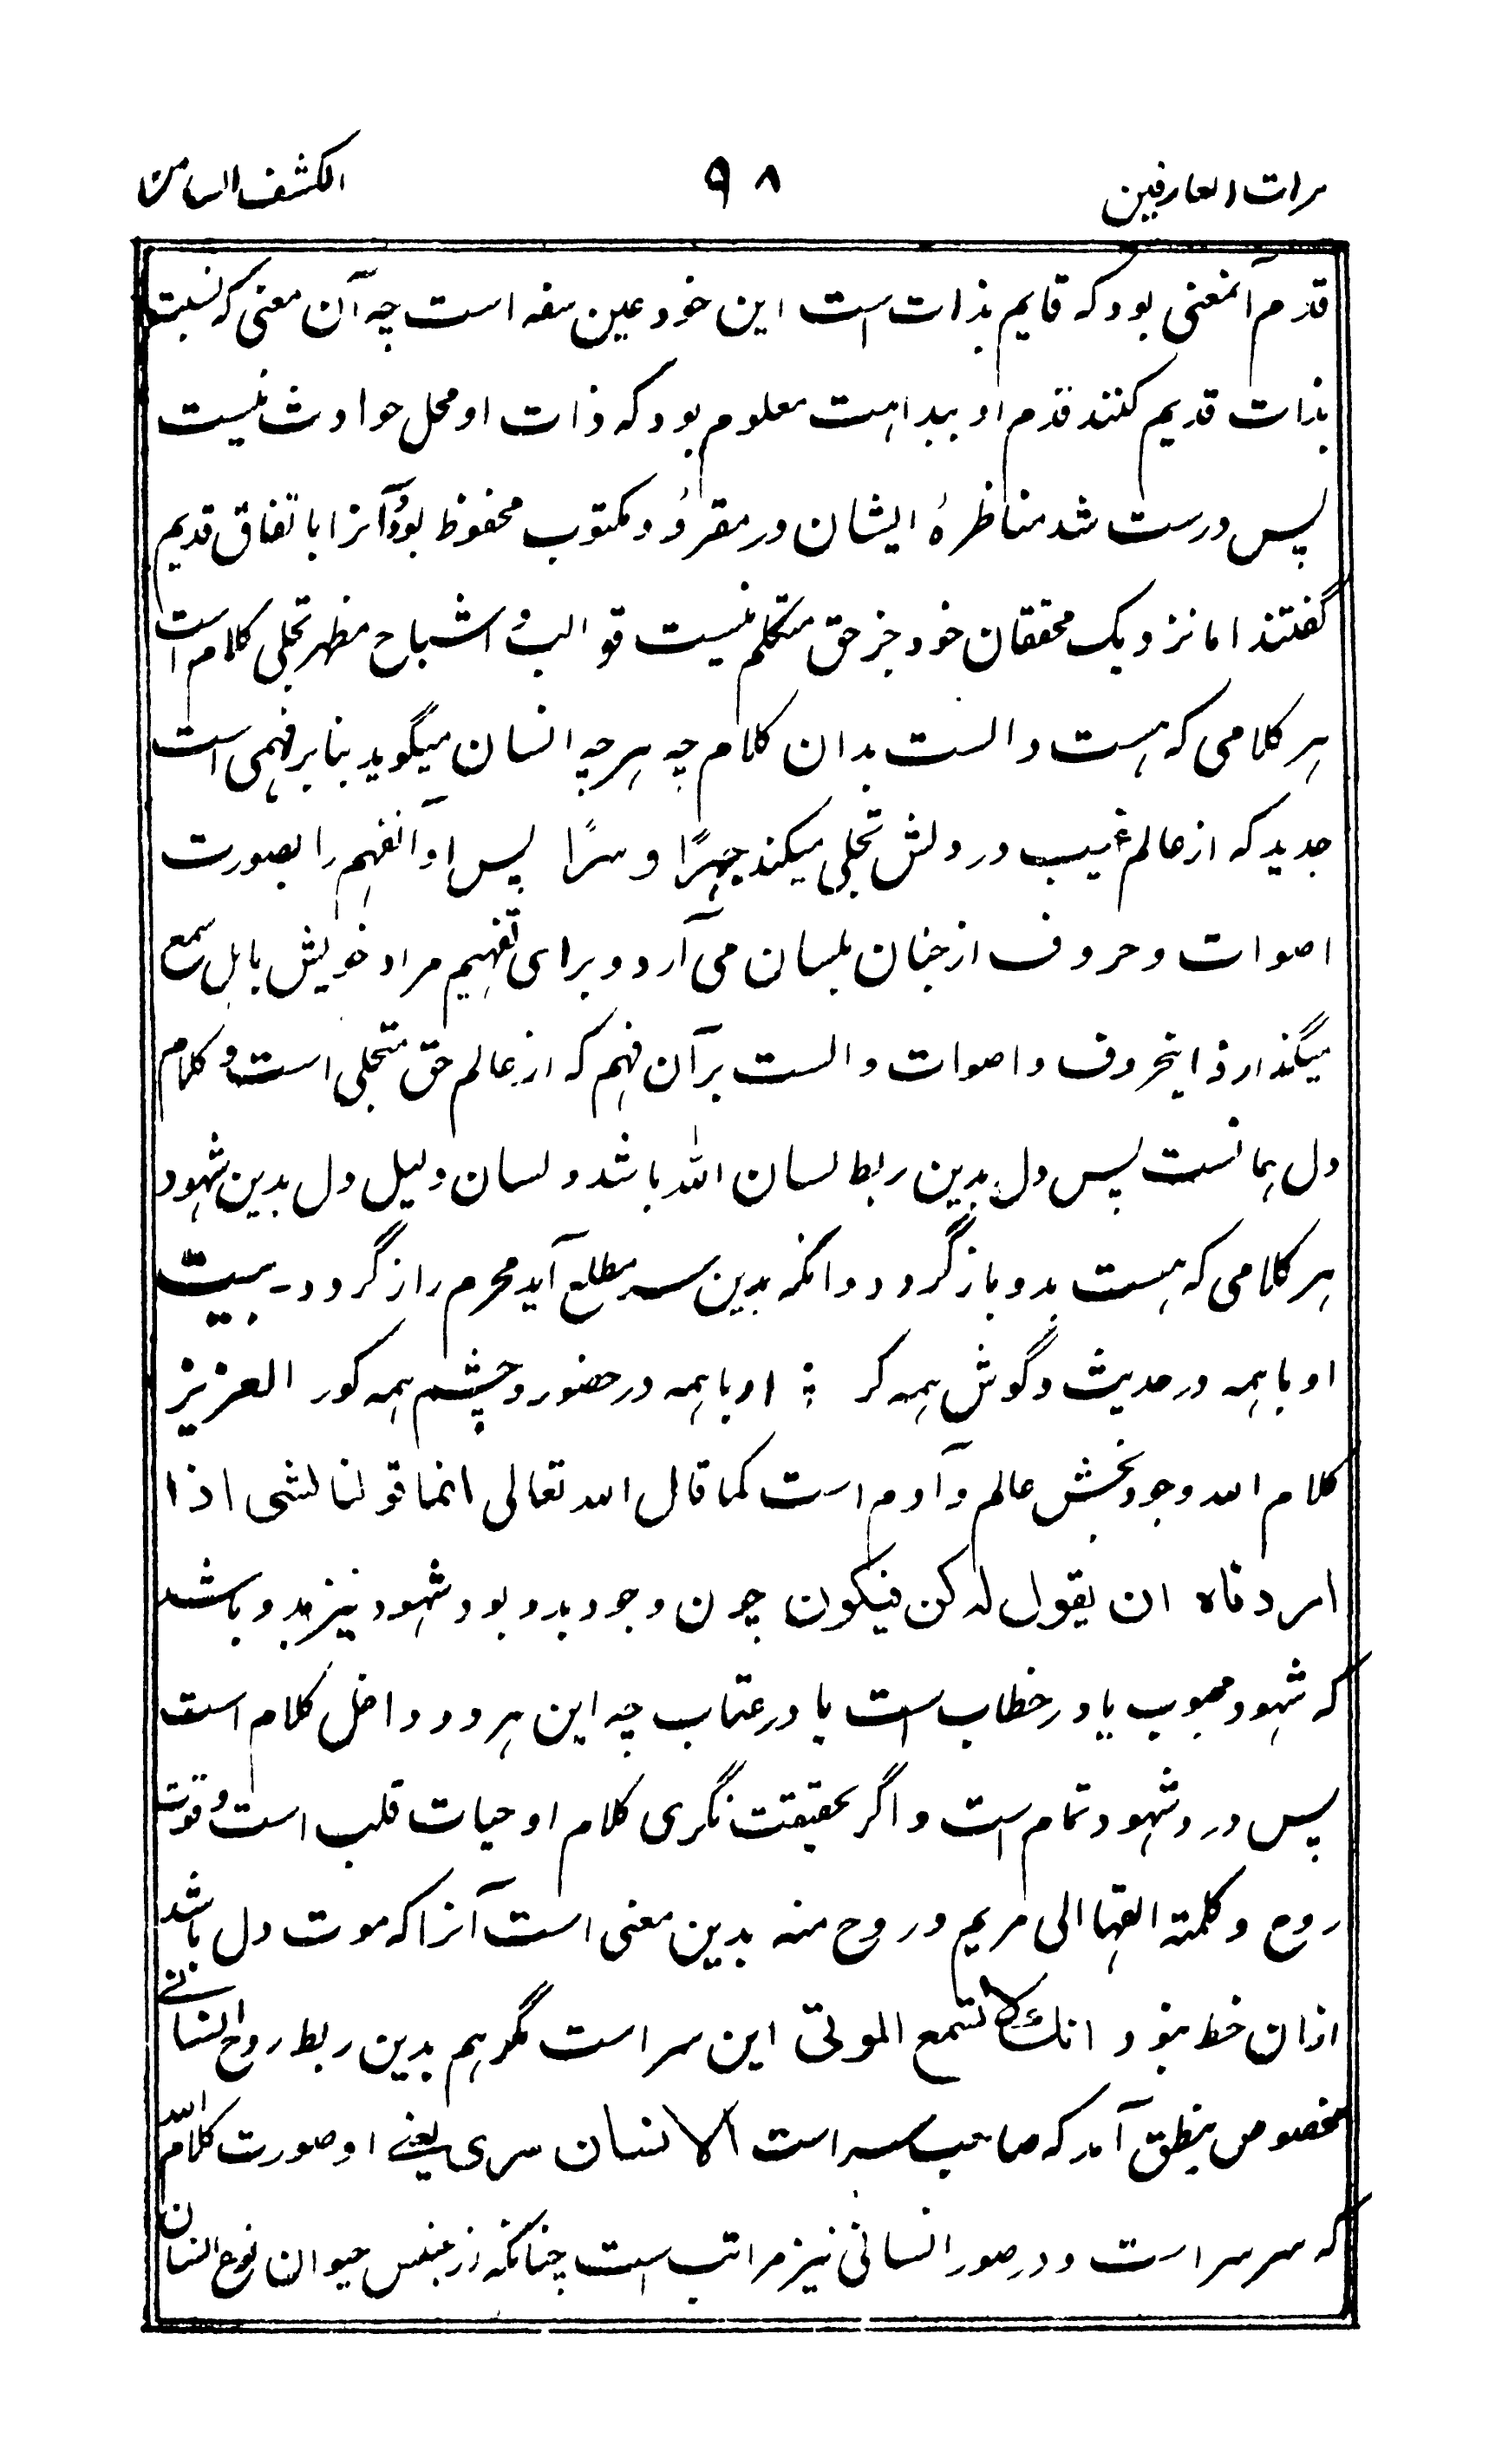 مرات العارفین ۹۸ الکشف الثامن
قدم آنمعنی بود که قایم بذات است این خود عین سفه است چه آن معنی که نسبت
بذات قدیم کنند قدم او ببداهت معلوم بود که ذات او محل حوادث نیست
پس درست شد مناظرهٔ ایشان در مقروُ و مکتوب محفوظ بودُ آنرا باتفاق قدیم
گفتند اما نزدیک محققان خود جز حق متکلم نیست قوالب و اشباح مظهر تجلی کلام است
هر کلامی که هست دالست بدان کلام چه هر چه انسان میگوید بنابر فهمی است
جدید که از عالم غیب در دلش تجلی میکند جهرًا و سرًا پس او آنفهم را بصورت
اصوات و حروف از جنان بلسان می آرد و برای تفهیم مراد خویش باہل سمع
میگذارد اینحروف و اصوات دالست بر آن فهم که از عالم حق متجلی است و کلام
دل ہمانست پس دل بدین ربط لسان اللہ باشد و لسان دلیل دل بدین شہود
ہر کلامی که ہست بدو باز گردد و آنکه بدین سر مطلع آید محرم راز گردد۔ بیت
او با ہمه در حدیث و گوش ہمه کر ؛ او با ہمه در حضور و چشم ہمه کور العزیز
کلام اللہ وجود بخش عالم و آدم است کما قال اللہ تعالی انما قولنا لشی اذا
اردناه ان یقول له کن فیکون چون وجود بدو بود شہود نیز بدو باشد
که شہود محبوب یا در خطاب است یا در عتاب چه این ہر دو داخل کلام است
پس در و شہود تمام است و اگر بحقیقت نگری کلام او حیات قلب است و قوت
روح و کلمته القہا الی مریم و روح منه بدین معنی است آنرا که موت دل باشد
ازان خط نبود انك لا تسمع الموتی این سر است مگر ہم بدین ربط روح انسانے
مخصوص بنطق آمد که صاحب سر است الانسان سری یعنے او صورت کلام اللہ
که سر سر است و در صور انسانی نیز مراتب است چنانکه از جنس حیوان نوع انسان